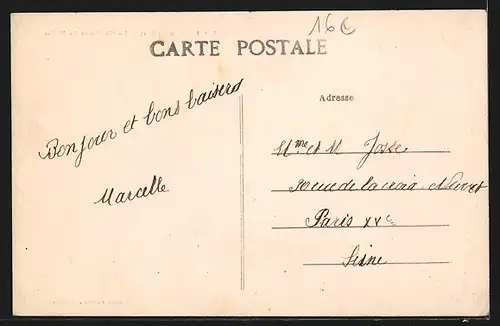 16
CARTE POSTALE
Bonjour et bons baisers
Marcelle
Adresse
Mme et M Josse
rue de la croix Nivert
Paris XVe
Seine